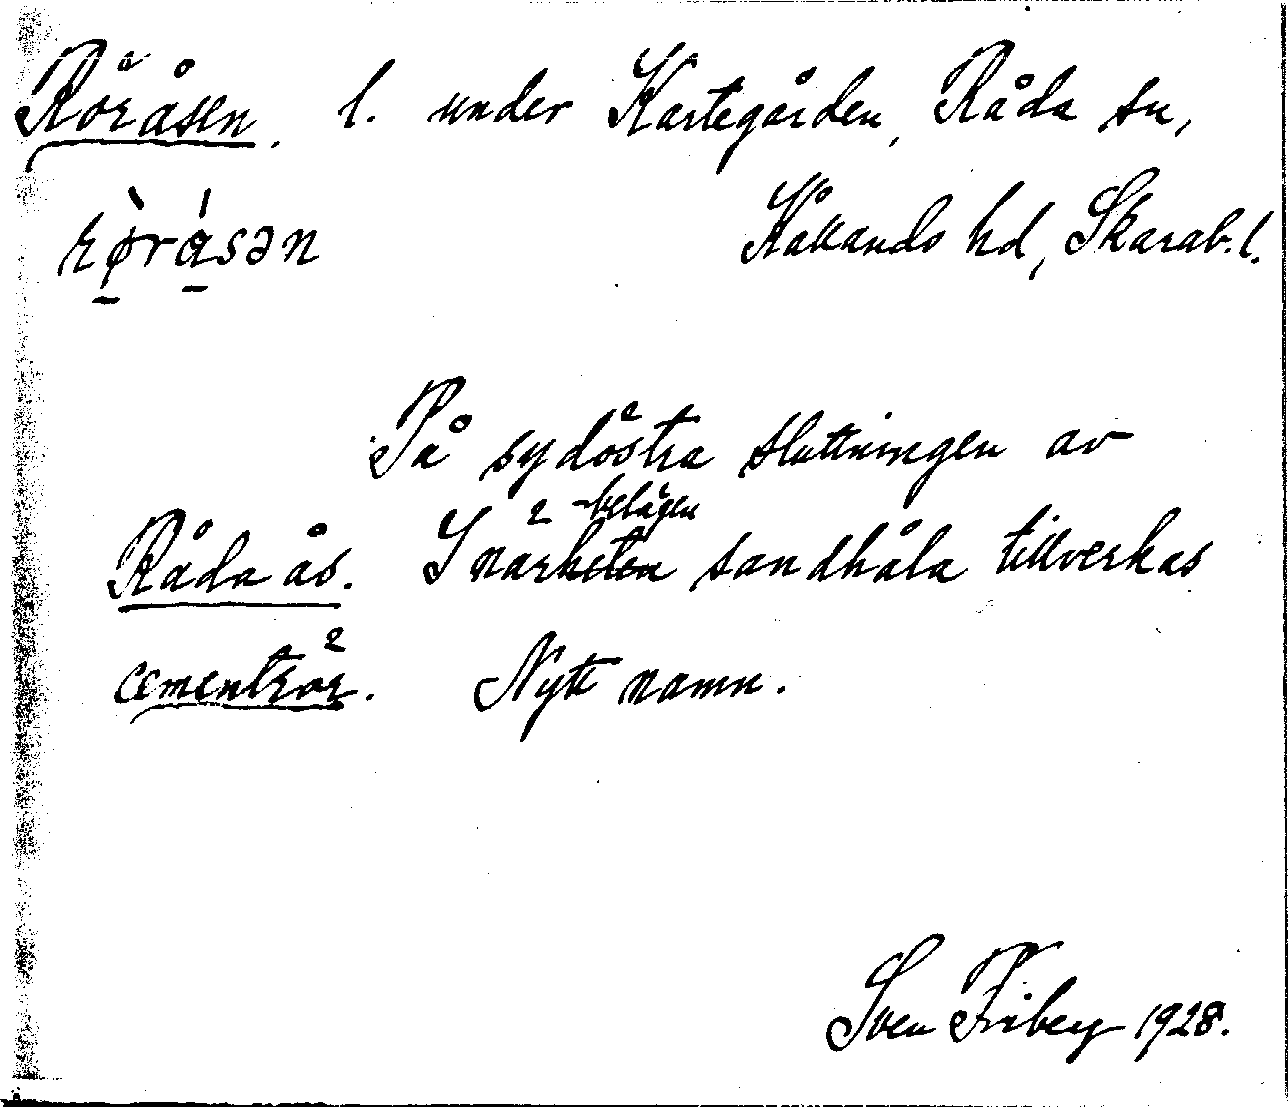 Röråsen, l. under Kartegården, Råda sn,
Kållands hd, Skarab. l.
rø̀rásən
På sydöstra sluttningen av
Råda ås. I närbelägen sandhåla tillverkas
cementrör. Nytt namn.
Sven Friberg 1928.